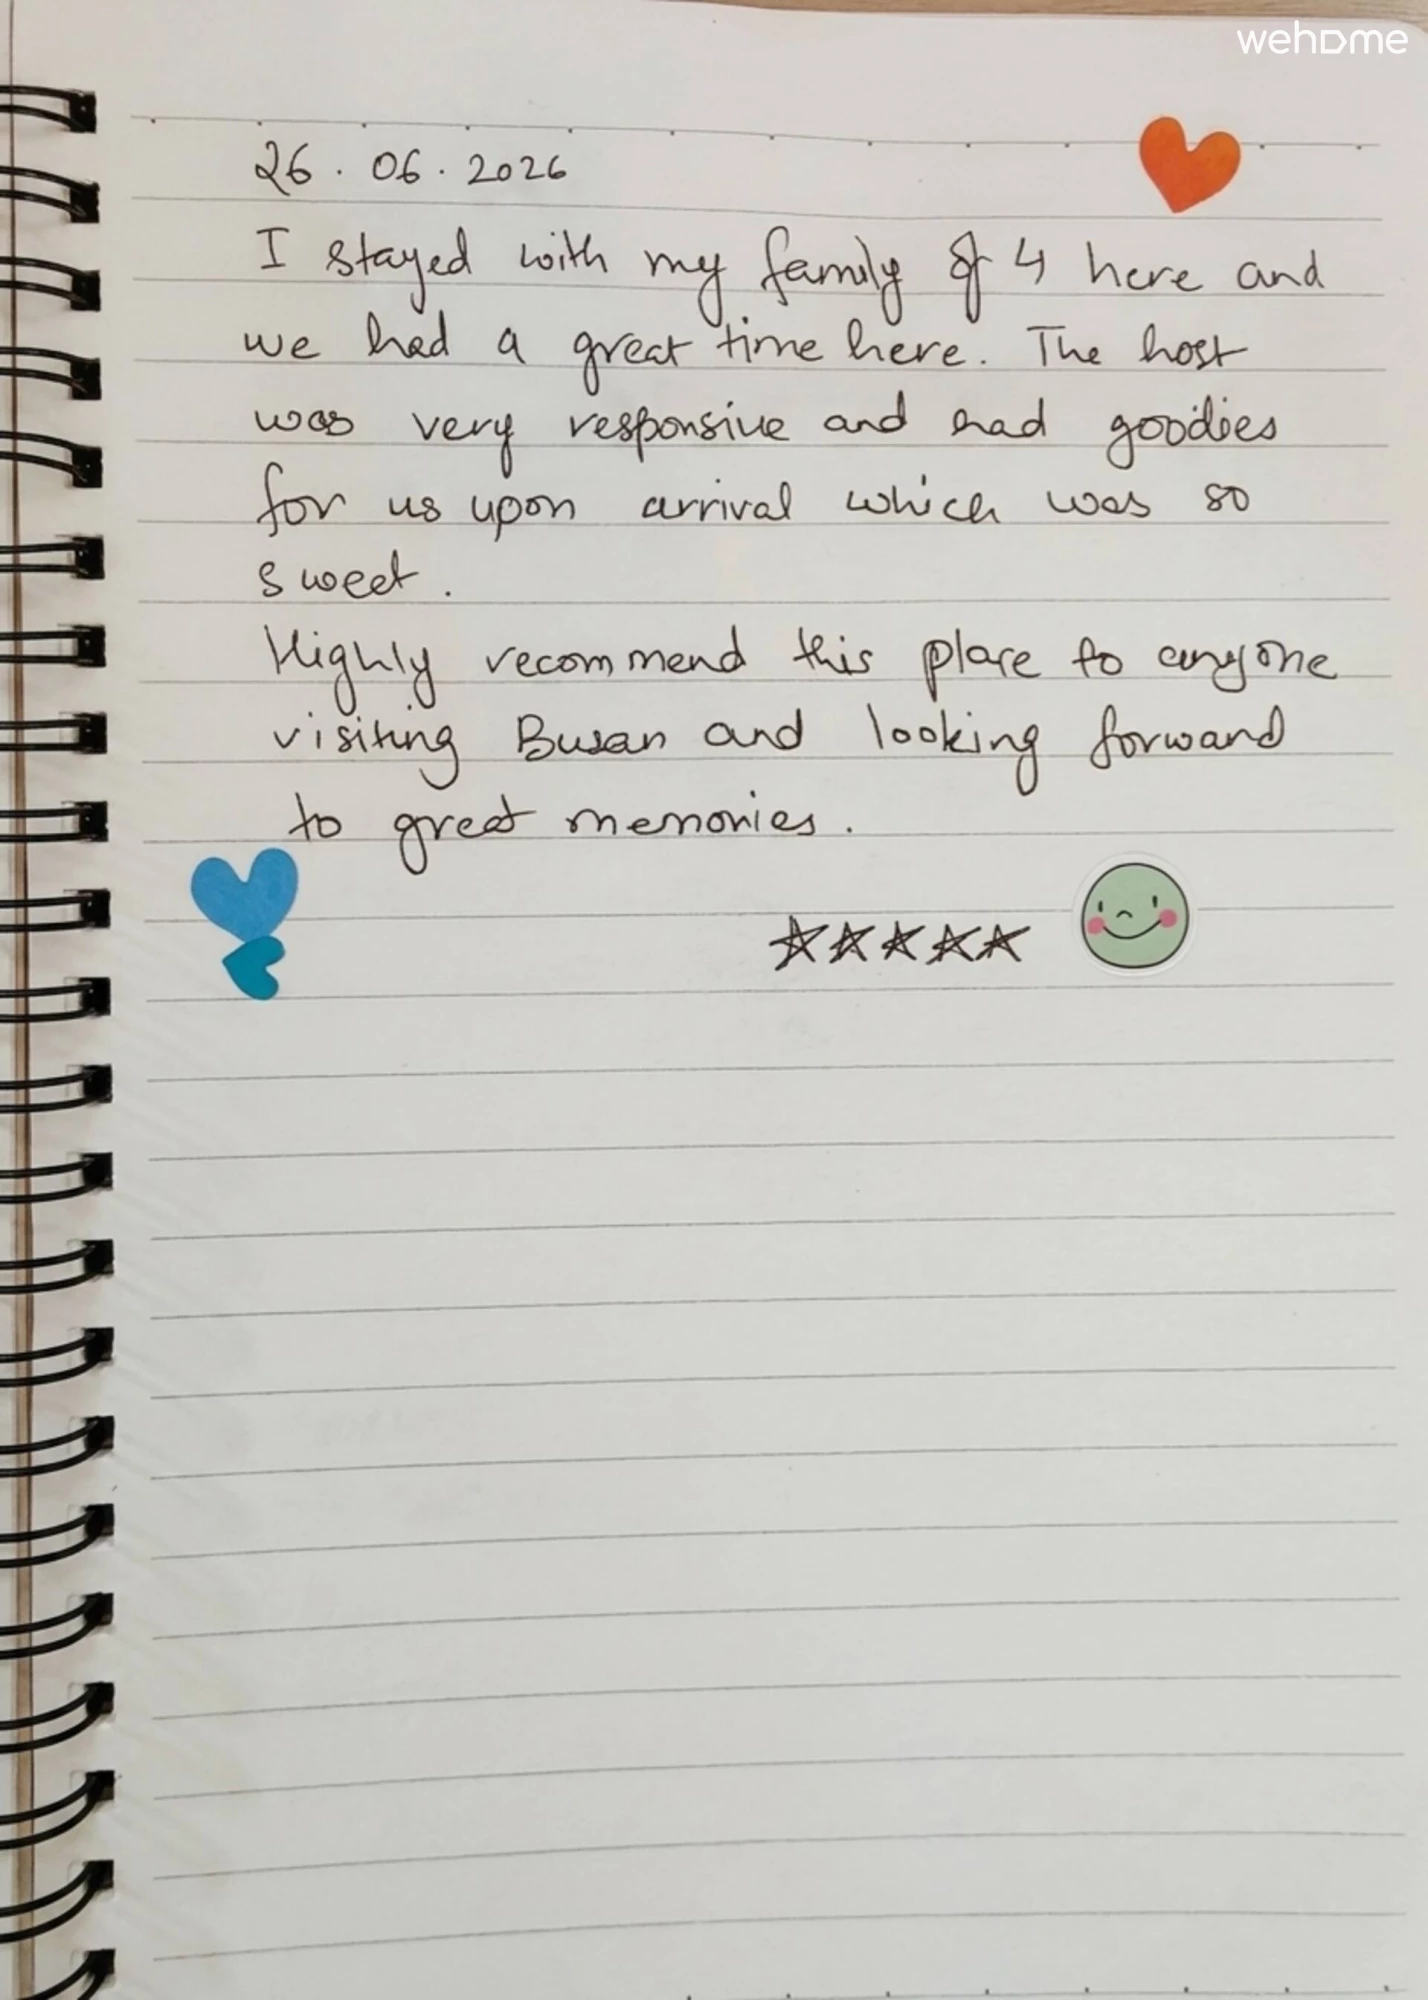 wehome
26 . 06 . 2026
I stayed with my family of 4 here and
we had a great time here. The host
was very responsive and had goodies
for us upon arrival which was so
sweet .
Highly recommend this place to anyone
visiting Busan and looking forward
to great memories .